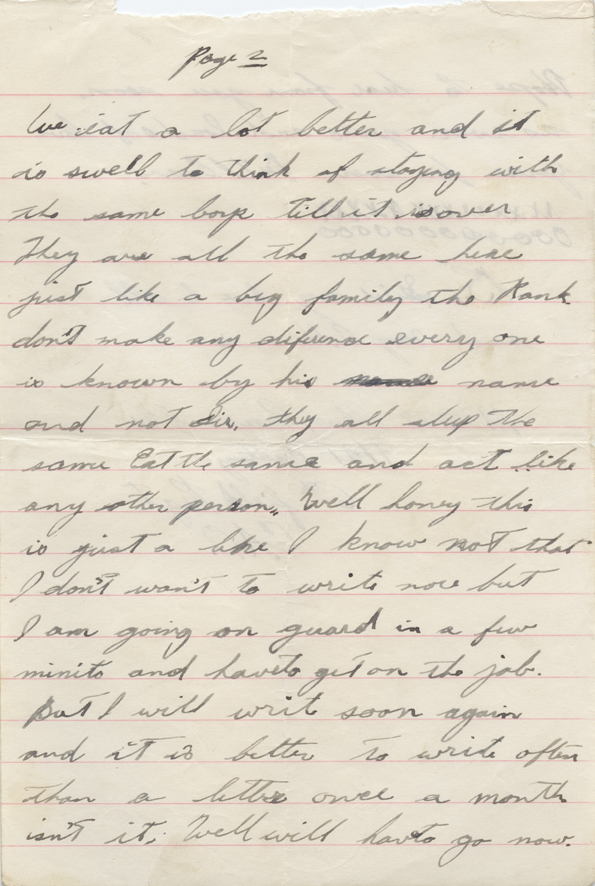 Page 2
We eat a lot better and it
is swell to think of staying with
the same boys till it is over
They are all the same here
just like a big family the Rank
don't make any diference every one
is known by his name
and not Sir, they all sleep the
same Eat the same and act like
any other person,, Well honey this
is just a line I know not that
I don't wan't to write now but
I am going on guard in a few
minits and haveto get on the job.
But I will writ soon again
and it is better to write often
than a letter once a month
isn't it. Well will haveto go now.